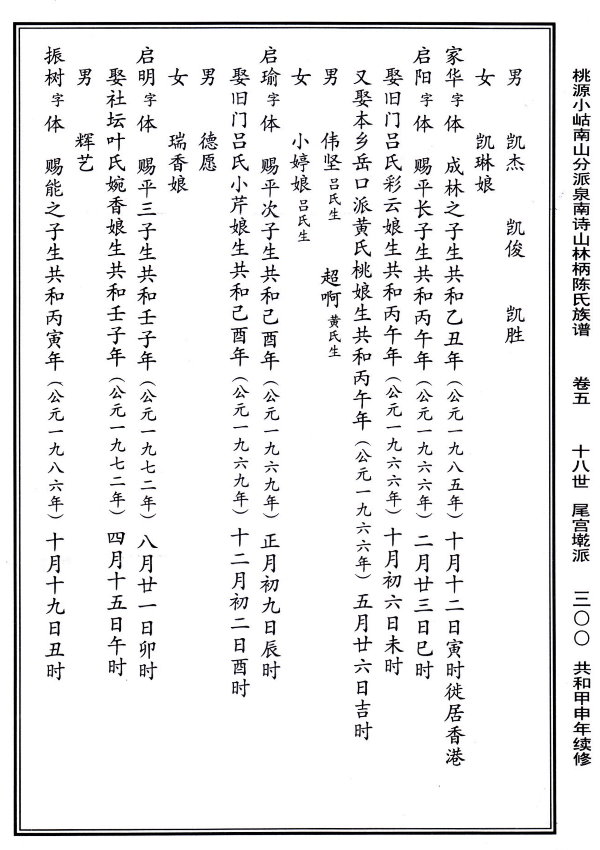 桃源小岵南山分派泉南诗山林柄陈氏族谱 卷五 十八世 尾宫墘派 三〇〇 共和甲申年续修
男 凯杰 凯俊 凯胜
女 凯琳娘
家华字 体 成林之子生共和乙丑年（公元一九八五年）十月十二日寅时徙居香港
启阳字 体 赐平长子生共和丙午年（公元一九六六年）二月廿三日巳时
娶旧门吕氏彩云娘生共和丙午年（公元一九六六年）十月初六日未时
又娶本乡岳口派黄氏桃娘生共和丙午年（公元一九六六年）五月廿六日吉时
男 伟坚吕氏生 超啊黄氏生
女 小婷娘吕氏生
启瑜字 体 赐平次子生共和己酉年（公元一九六九年）正月初九日辰时
娶旧门吕氏小芹娘生共和己酉年（公元一九六九年）十二月初二日酉时
男 德愿
女 瑞香娘
启明字 体 赐平三子生共和壬子年（公元一九七二年）八月廿一日卯时
娶社坛叶氏婉香娘生共和壬子年（公元一九七二年）四月十五日午时
男 辉艺
振树字 体 赐能之子生共和丙寅年（公元一九八六年）十月十九日丑时